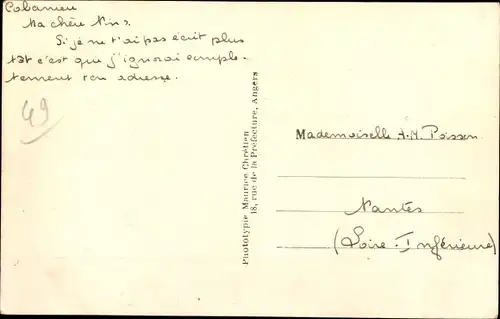 Ma chère
Si je ne t'ai pas écrit plus
tôt c'est que j'ignorai comple-
tement ton adresse.
49
Phototypie Maurice Chrétien
18, rue de la Préfecture, Angers
Mademoiselle A.M. Poisson
Nantes
(Loire-Inférieure)